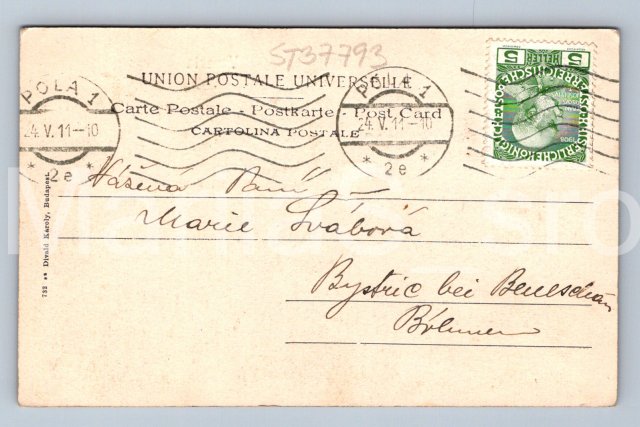 ST37793
UNION POSTALE UNIVERSELLE
Carte Postale - Postkarte - Post Card
CARTOLINA POSTALE
POLA 1
24.V.11-10
* 2e *
POLA 1
24.V.11-10
* 2e *
5 HELLER 5
1908
Vážená Paní
Marie Švábová
Bystřic bei Beneschau
Böhmen
732 ** Divald Karoly, Budapest.